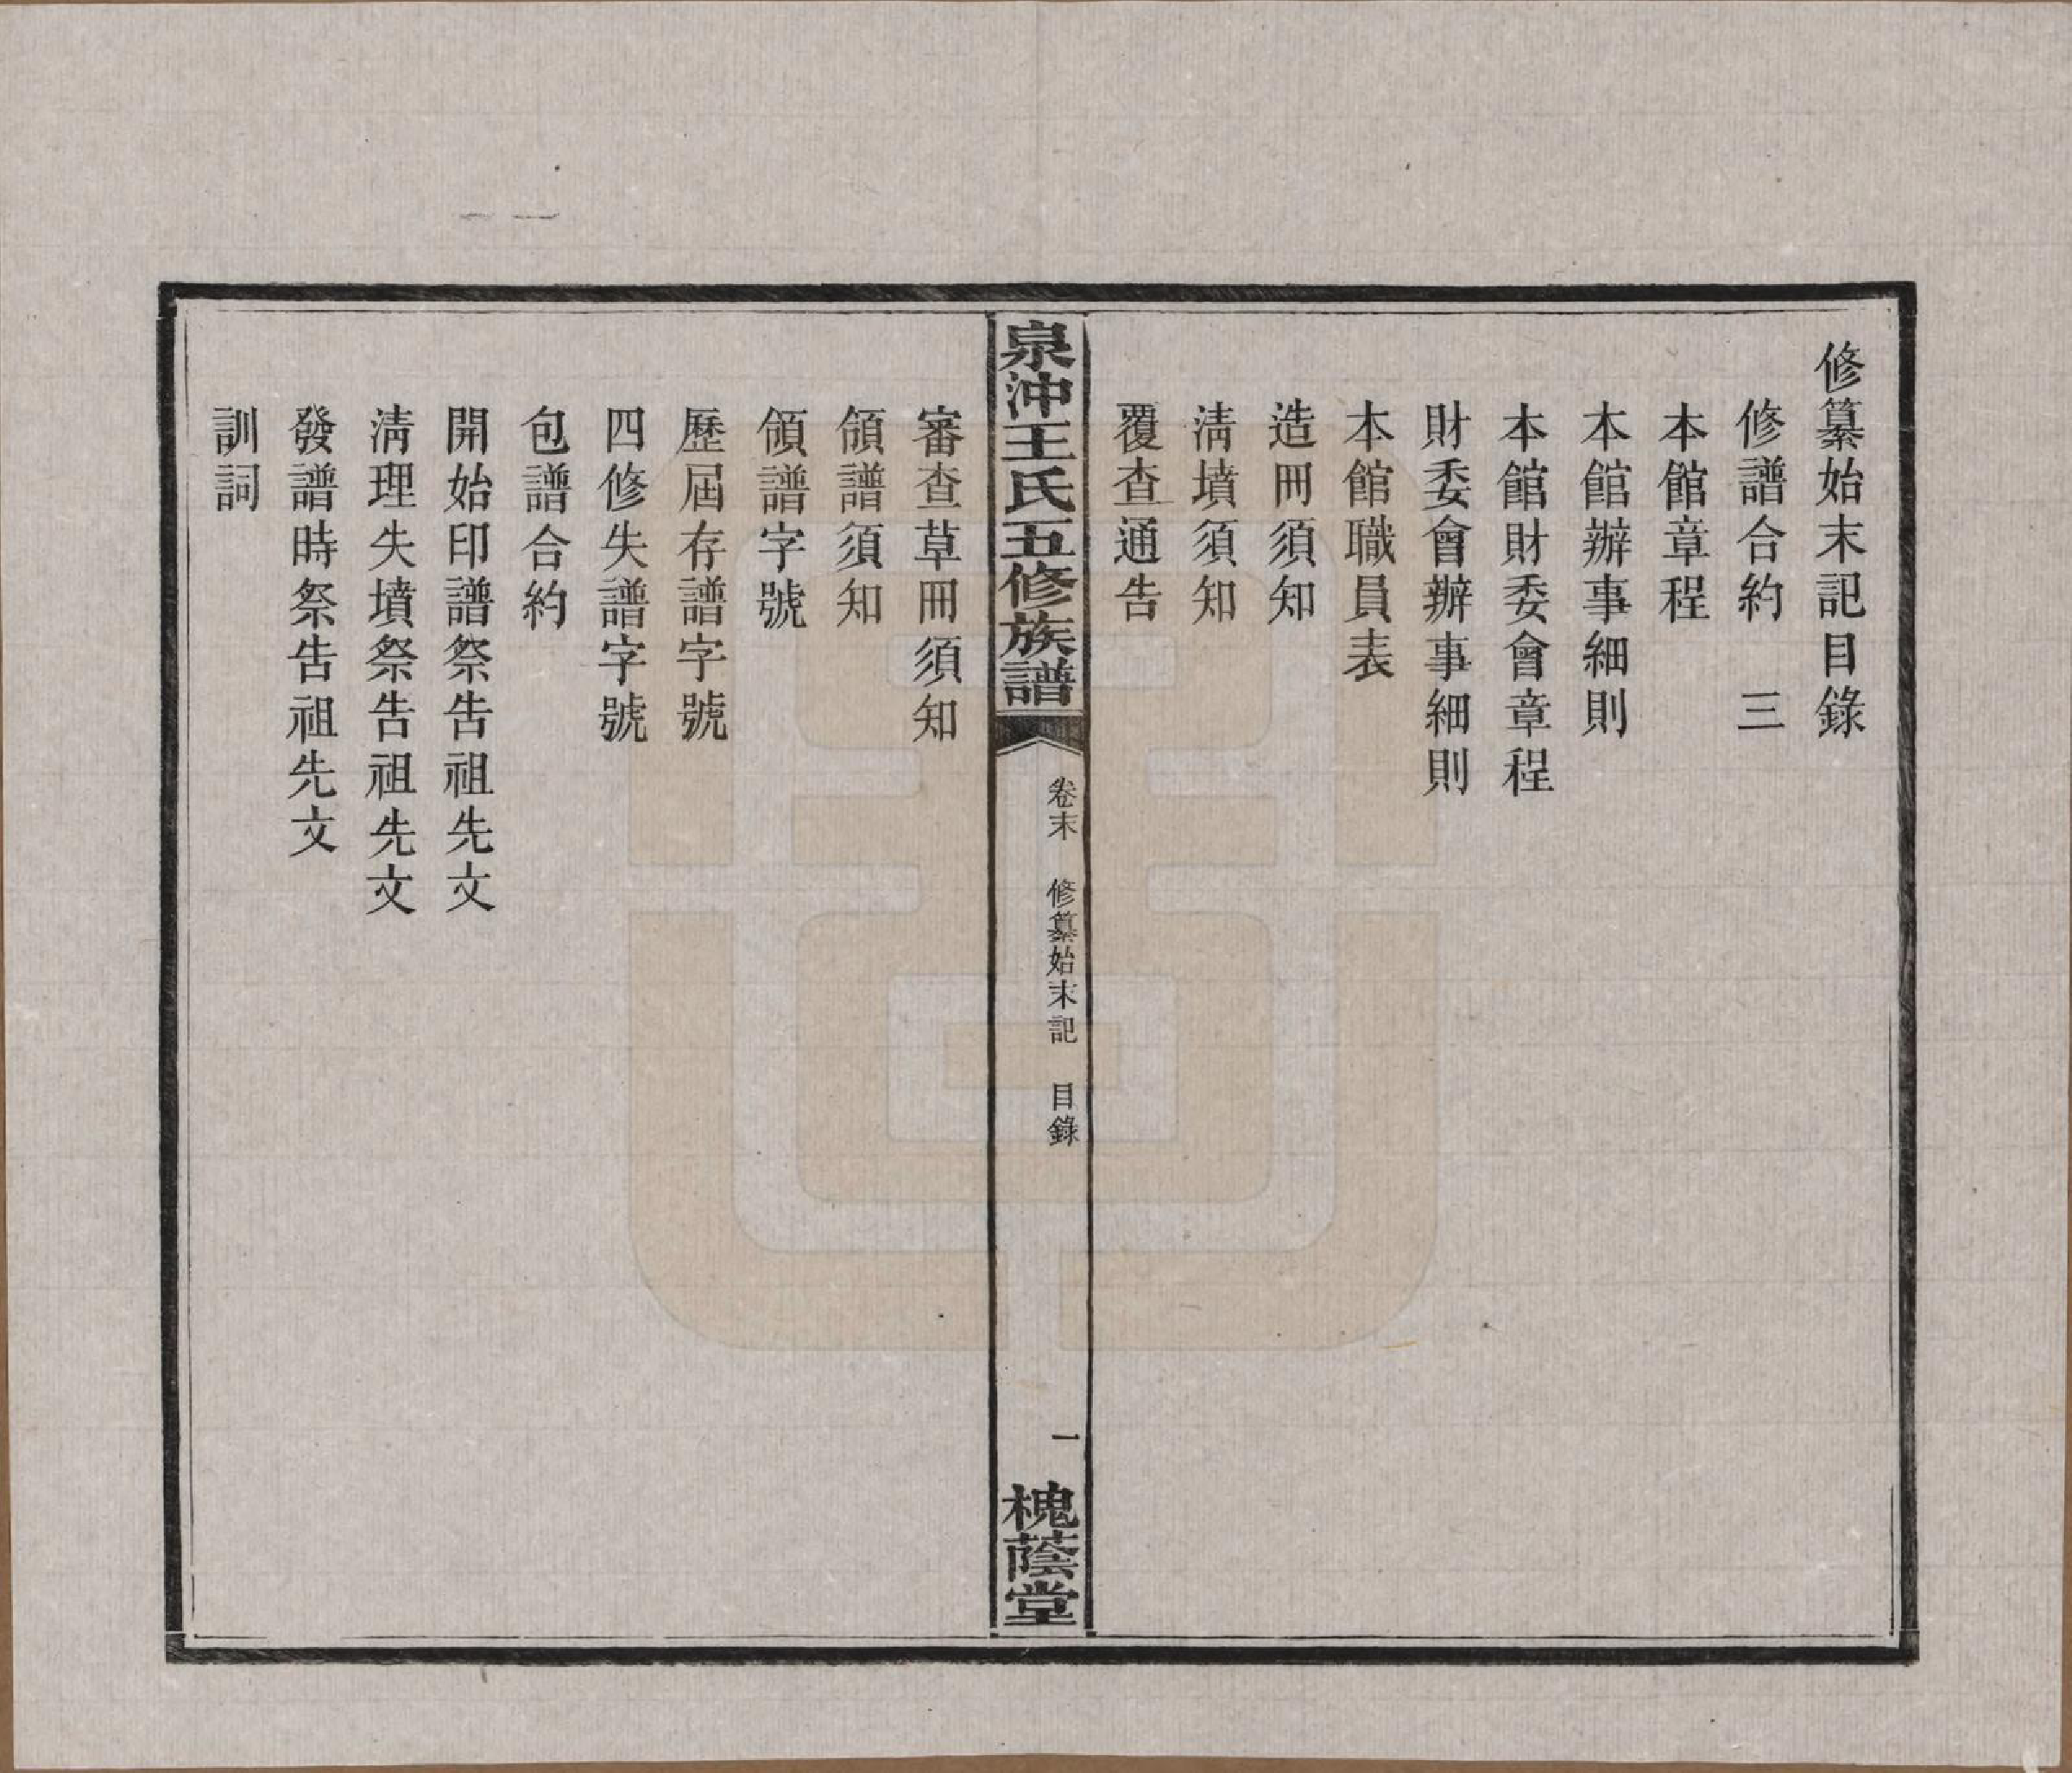 修纂始末記目錄
修譜合約　三
本館章程
本館辦事細則
本館財委會章程
財委會辦事細則
本館職員表
造冊須知
淸墳須知
覆查通告
泉沖王氏五修族譜
卷末　修纂始末記　目錄
一
槐蔭堂
審查草冊須知
領譜須知
領譜字號
歷屆存譜字號
四修失譜字號
包譜合約
開始印譜祭告祖先文
淸理失墳祭告祖先文
發譜時祭告祖先文
訓詞